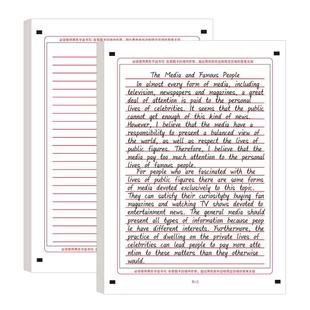 The Media and Famous People
In almost every form of media, including
television, newspapers and magazines, a great
deal of attention is paid to the personal
lives of celebrities. It seems that the public
cannot get enough of this kind of news.
However, I believe that the media have a
responsibility to present a balanced view of
the world, as well as respect the lives of
public figures. Therefore, I believe that the
media pay too much attention to the personal
lives of famous people.
For people who are fascinated with the
lives of public figures there are some forms
of media devoted exclusively to this topic.
They can satisfy their curiosityby buying fan
magazines and watching TV shows devoted to
entertainment news. The general media should
present all types of information because peop
le have different interests. Furthermore, the
practice of dwelling on the private lives of
celebrities can lead people to pay more atte
ntion to these matters than they otherwise
would.